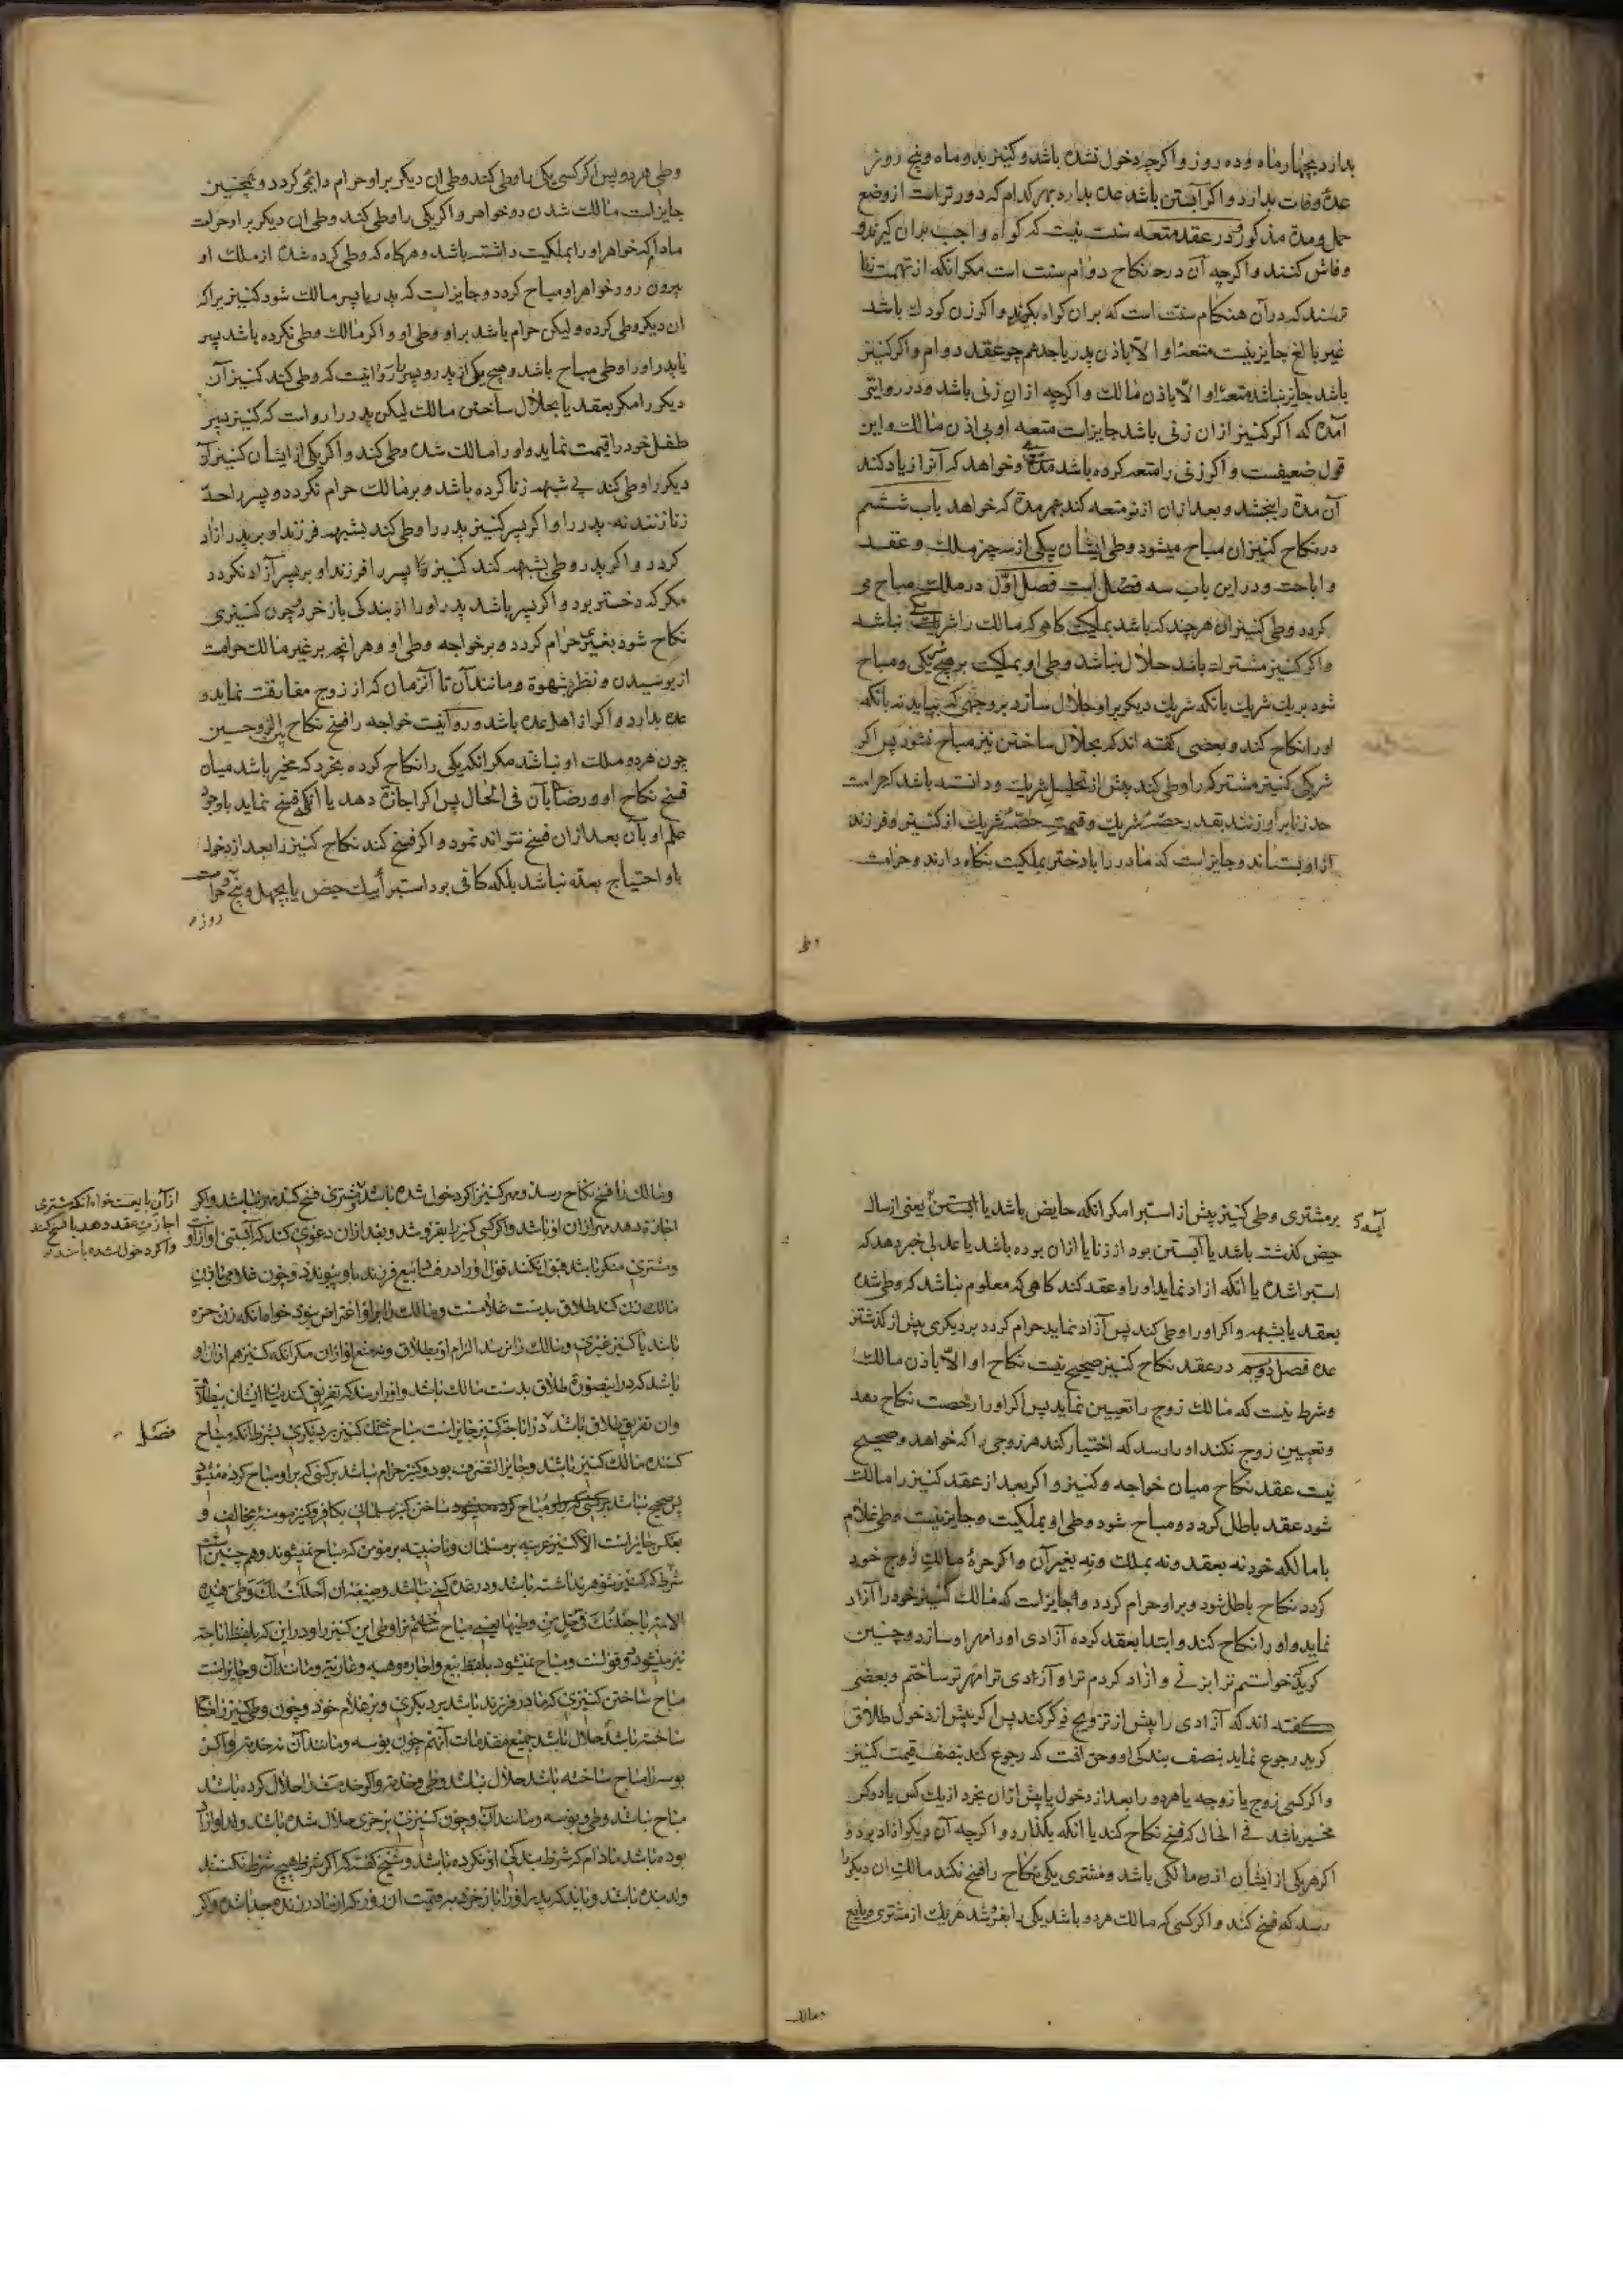 بدارد بچهار ماه و ده روز و اگرچه دخول نشده باشد و کنیز بدو ماه و پنج روز
عدهٔ وفات بدارد و اگر آبستن باشد عده بدارد بهر کدام که دورتر است از وضع
حمل و مدة مذکور و در عقد متعه سنت نیست که گواه و اجب بران گیرند و
وفاش کنند و اگرچه آن در نکاح دوام سنت است مگر انکه از تهمت زنا
ترسند که در آن هنکام سنت است که بران گواه بگیرند و اگر زن کودک باشد
غیر بالغ جایز نیست متعهٔ او الّا باذن پدر یا جد هم چو عقد دوام و اگر کنیز
باشد جایز نباشد متعهٔ او الّا باذن مالک و اگرچه از ان زنی باشد و در روایتی
آمده که اگر کنیز از ان زنی باشد جایز است متعه او بی اذن مالک و این
قول ضعیفست و اگر زنی را متعه کرده باشد مدتی و خواهد که آنرا زیاد کند
آن مدة را بخشد و بعد ازان از نو متعه کند بهر مدة که خواهد باب ششم
در نکاح کنیزان مباح میشود وطی ایشان بیکی از سه چیز ملک و عقد
و اباحت و در این باب سه فصل است فصل اوّل در ملک مباح می
کردد وطی کنیزان هر چند که باشد بملکیت کاهی که مالک را شریکی نباشد
و اگر کنیز مشترک باشد حلال نباشد وطی او بملکیت بر هیچ شریکی و مباح
شود بریک شریک بانکه شریک دیگر بر او حلال سازد بر وجهی که بیاید نه بانکه
او را نکاح کند و بعضی گفته اند که بحلال ساختن نیز مباح نشود پس اگر
شریکی کنیز مشترک را وطی کند پیش از تحلیل شریک و دانسته باشد که حرامت
حد زنا بر او زنند بقدر حصّهٔ شریک و قیمت حصّهٔ شریک از کنیز و فرزند
از او بستاند و جایز است که مادر را با دختر بملکیت نگاه دارند و حرامت
وطی
وطی هر دو پس اگر کسی یکی را وطی کند وطی ان دیگر بر او حرام دائمی کردد و همچنین
جایز است مالک شدن دو خواهر و اگر یکی را وطی کند وطی ان دیگر بر او حرامت
مادام که خواهر او را بملکیت داشته باشد و هرکاه که وطی کرده شده از ملک او
بیرون رود خواهر او مباح کردد و جایز است که پدر یا پسر مالک شود کنیزیرا که
ان دیگر وطی کرده و لیکن حرام باشد بر او وطی او و اگر مالک وطی نکرده باشد پسر
یا پدر او را وطی مباح باشد و هیچ یکی از پدر و پسر را روا نیست که وطی کند کنیز آن
دیگر را مگر بعقد یا بحلال ساختن مالک لیکن پدر را روا است که کنیز پسر
طفل خود را قیمت نماید و او را مالک شده وطی کند و اگر یکی از ایشان کنیز آن
دیگر را وطی کند بی شبهه زنا کرده باشد و بر مالک حرام نگردد و پسر را حدّ
زنا زنند نه پدر را و اگر پسر کنیز پدر را وطی کند بشبهه فرزند او بر پدر ازاد
کردد و اگر پدر وطی بشبهه کند کنیز پسر را فرزند او بر پسر آزاد نگردد
مگر که دختر بود و اگر پسر باشد پدر او را از بندکی باز خرد و چون کنیزی
نکاح شود بغیری حرام کردد بر خواجه وطی او و هر انچه بر غیر مالک حرامت
از بوسیدن و نظر بشهوة و مانند آن تا آنزمان که از زوج مفارقت نماید و
عده بدارد و اگر از اهل عده باشد و روا نیست خواجه را فسخ نکاح بین الزوجین
چون هر دو ملک او نباشد مگر انکه یکی را نکاح کرده بخرد که مخیر باشد میان
فسخ نکاح او و رضا بآن فی الحال پس اگر اجازه دهد یا انکه فسخ ننماید باوجود
علم او بآن بعد ازان فسخ نتواند نمود و اگر فسخ کند نکاح کنیز را بعد از دخول
باو احتیاج بعده نباشد بلکه کافی بود استبرا بیک حیض یا بچهل و پنج و حرامت
روزه
بر مشتری وطی کنیز پیش از استبرا مگر انکه حایض باشد یا ابستن یعنی از سال
آیسه
حیض گذشته باشد یا آبستن بود از زنا یا ازان بوده باشد یا عدلی خبر دهد که
استبرا شده یا انکه ازاد نماید او را و عقد کند کاهی که معلوم نباشد که وطی شده
بعقد یا بشبهه و اگر او را وطی کند پس آزاد نماید حرام کردد بر دیگری پیش از گذشتن
عده فصل دویم در عقد نکاح کنیز صحیح نیست نکاح او الّا باذن مالک
و شرط نیست که مالک زوج را تعیین نماید پس اگر او را رخصت نکاح دهد
و تعیین زوج نکند او را رسد که اختیار کند هر زوجی را که خواهد و صحیح
نیست عقد نکاح میان خواجه و کنیز و اگر بعد از عقد کنیز را مالک
شود عقد باطل کردد و مباح شود وطی او بملکیت و جایز نیست وطی غلام
با مالکه خود نه بعقد و نه بملک و نه بغیر آن و اگر حرهٔ مالک زوج خود
کردد نکاح باطل شود و بر او حرام کردد و جایز است که مالک کنیز خود را آزاد
نماید و او را نکاح کند و ابتدا بعقد کرده آزادی او را مهر او سازد و چنین
گوید خواستم ترا بزنی و ازاد کردم ترا و آزادی ترا مهر تو ساختم و بعضی
گفته اند که آزادی را پیش از تزویج ذکر کند پس اگر پیش از دخول طلاق
گوید رجوع نماید بنصف بندکی او و حق انست که رجوع کند بنصف قیمت کنیز
و اگر کسی زوج یا زوجه یا هر دو را بعد از دخول یا پیش ازان بخرد از یک کس یا دو کس
مخیر باشد فی الحال که فسخ نکاح کند یا انکه بگذارد و اگرچه آن دیگر ازاد بود و
اگر هر یکی از ایشان ازان مالکی باشد و مشتری یکی نکاح را فسخ نکند مالک ان دیگر را
رسد که فسخ کند و اگر کسی که مالک هر دو باشد یکی را بفروشد هر یک از مشتری و بایع
و مالک
و مالک را فسخ نکاح رسد و مهر کنیز اگر دخول شده باشد و مشتری فسخ کند مهر نباشد و اگر
اجازه دهد مهر ازان او باشد و اگر کسی کنیز را بفروشد و بعد ازان دعوی کند که آبستنی او از او
و مشتری منکر باشد قبول نکنند قول او را در فساد بیع و فرزند باو پیوندد و چون غلامی باذن
مالک زن کند طلاق بدست غلامست و مالک را بر او اعتراض نبود خواه انکه زن حره
باشد یا کنیز غیری و مالک را نرسد الزام او بطلاق و نه منع او ازان مگر انکه کنیز هم ازان او
باشد که در اینصورة طلاق بدست مالک باشد و او را رسد که تفریق کند میان ایشان بیطلاق
و ان تفریق طلاق باشد در اباحت کنیز جایز است مباح ختن کنیز بر دیگری بشرط انکه مباح
فصل
کننده مالک کنیز باشد و جایز التصرف بود و کنیز حرام نباشد بر کسی که بر او مباح کرده میشود
پس صحیح نباشد مباح ساختن کنیز مسلمان بکافر و کنیز مومنه بمخالف و
بعکس جایز است الا کنیز حربیه بر مسلمان و ناصبیه بر مومن که مباح نمیشوند و هم چنین است
شرط که کنیز شوهر نداشته باشد و در عده کسی نباشد و صیغهٔ ان احللت لک وطی هذه
الامة یا جعلتک فی حل من وطیها یعنی مباح ساختم ترا وطی این کنیز را و در این که بلفظ اباحت
نیز میشود دو قولست و مباح نمیشود بلفظ بیع و اجاره و هبه و عاریة و مانند آن و جایز است
مباح ساختن کنیزی که مادر فرزند باشد بر دیگری و بر غلام خود و چون وطی کنیز را مباح
ساخته باشد حلال باشد جمیع مقدمات آنهم چون بوسه و مانند آن نه خدمت و اگر
بوسه را مباح ساخته باشد حلال نباشد وطی و خدمت و اگر خدمت را حلال کرده باشد
مباح نباشد وطی و بوسه و مانند آن و چون کنیزی بر حری حلال شده باشد ولد او ازاد
بوده باشد مادام که شرط بندکی او نکرده باشد و شیخ گفته که اگر شرط هیچ شرط نکنند
ولد بنده باشد و باید که پدر او را باز خرد به قیمت ان روز که از مادر زنده جدا شده و اگر
ازآن بایعست خواه انکه مشتری
اجازت عقد دهد یا فسخ کند
و اگر دخول شده باشد و